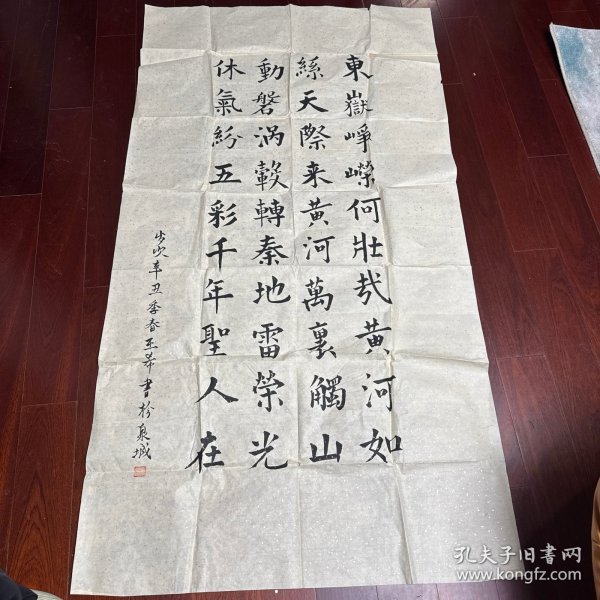 東嶽崢嶸何壯哉黃河如
絲天際来黃河萬裏觸山
動磐渦轂轉秦地雷榮光
休氣紛五彩千年聖人在
岁次辛丑季春書於泉城
孔夫子旧书网
www.kongfz.com